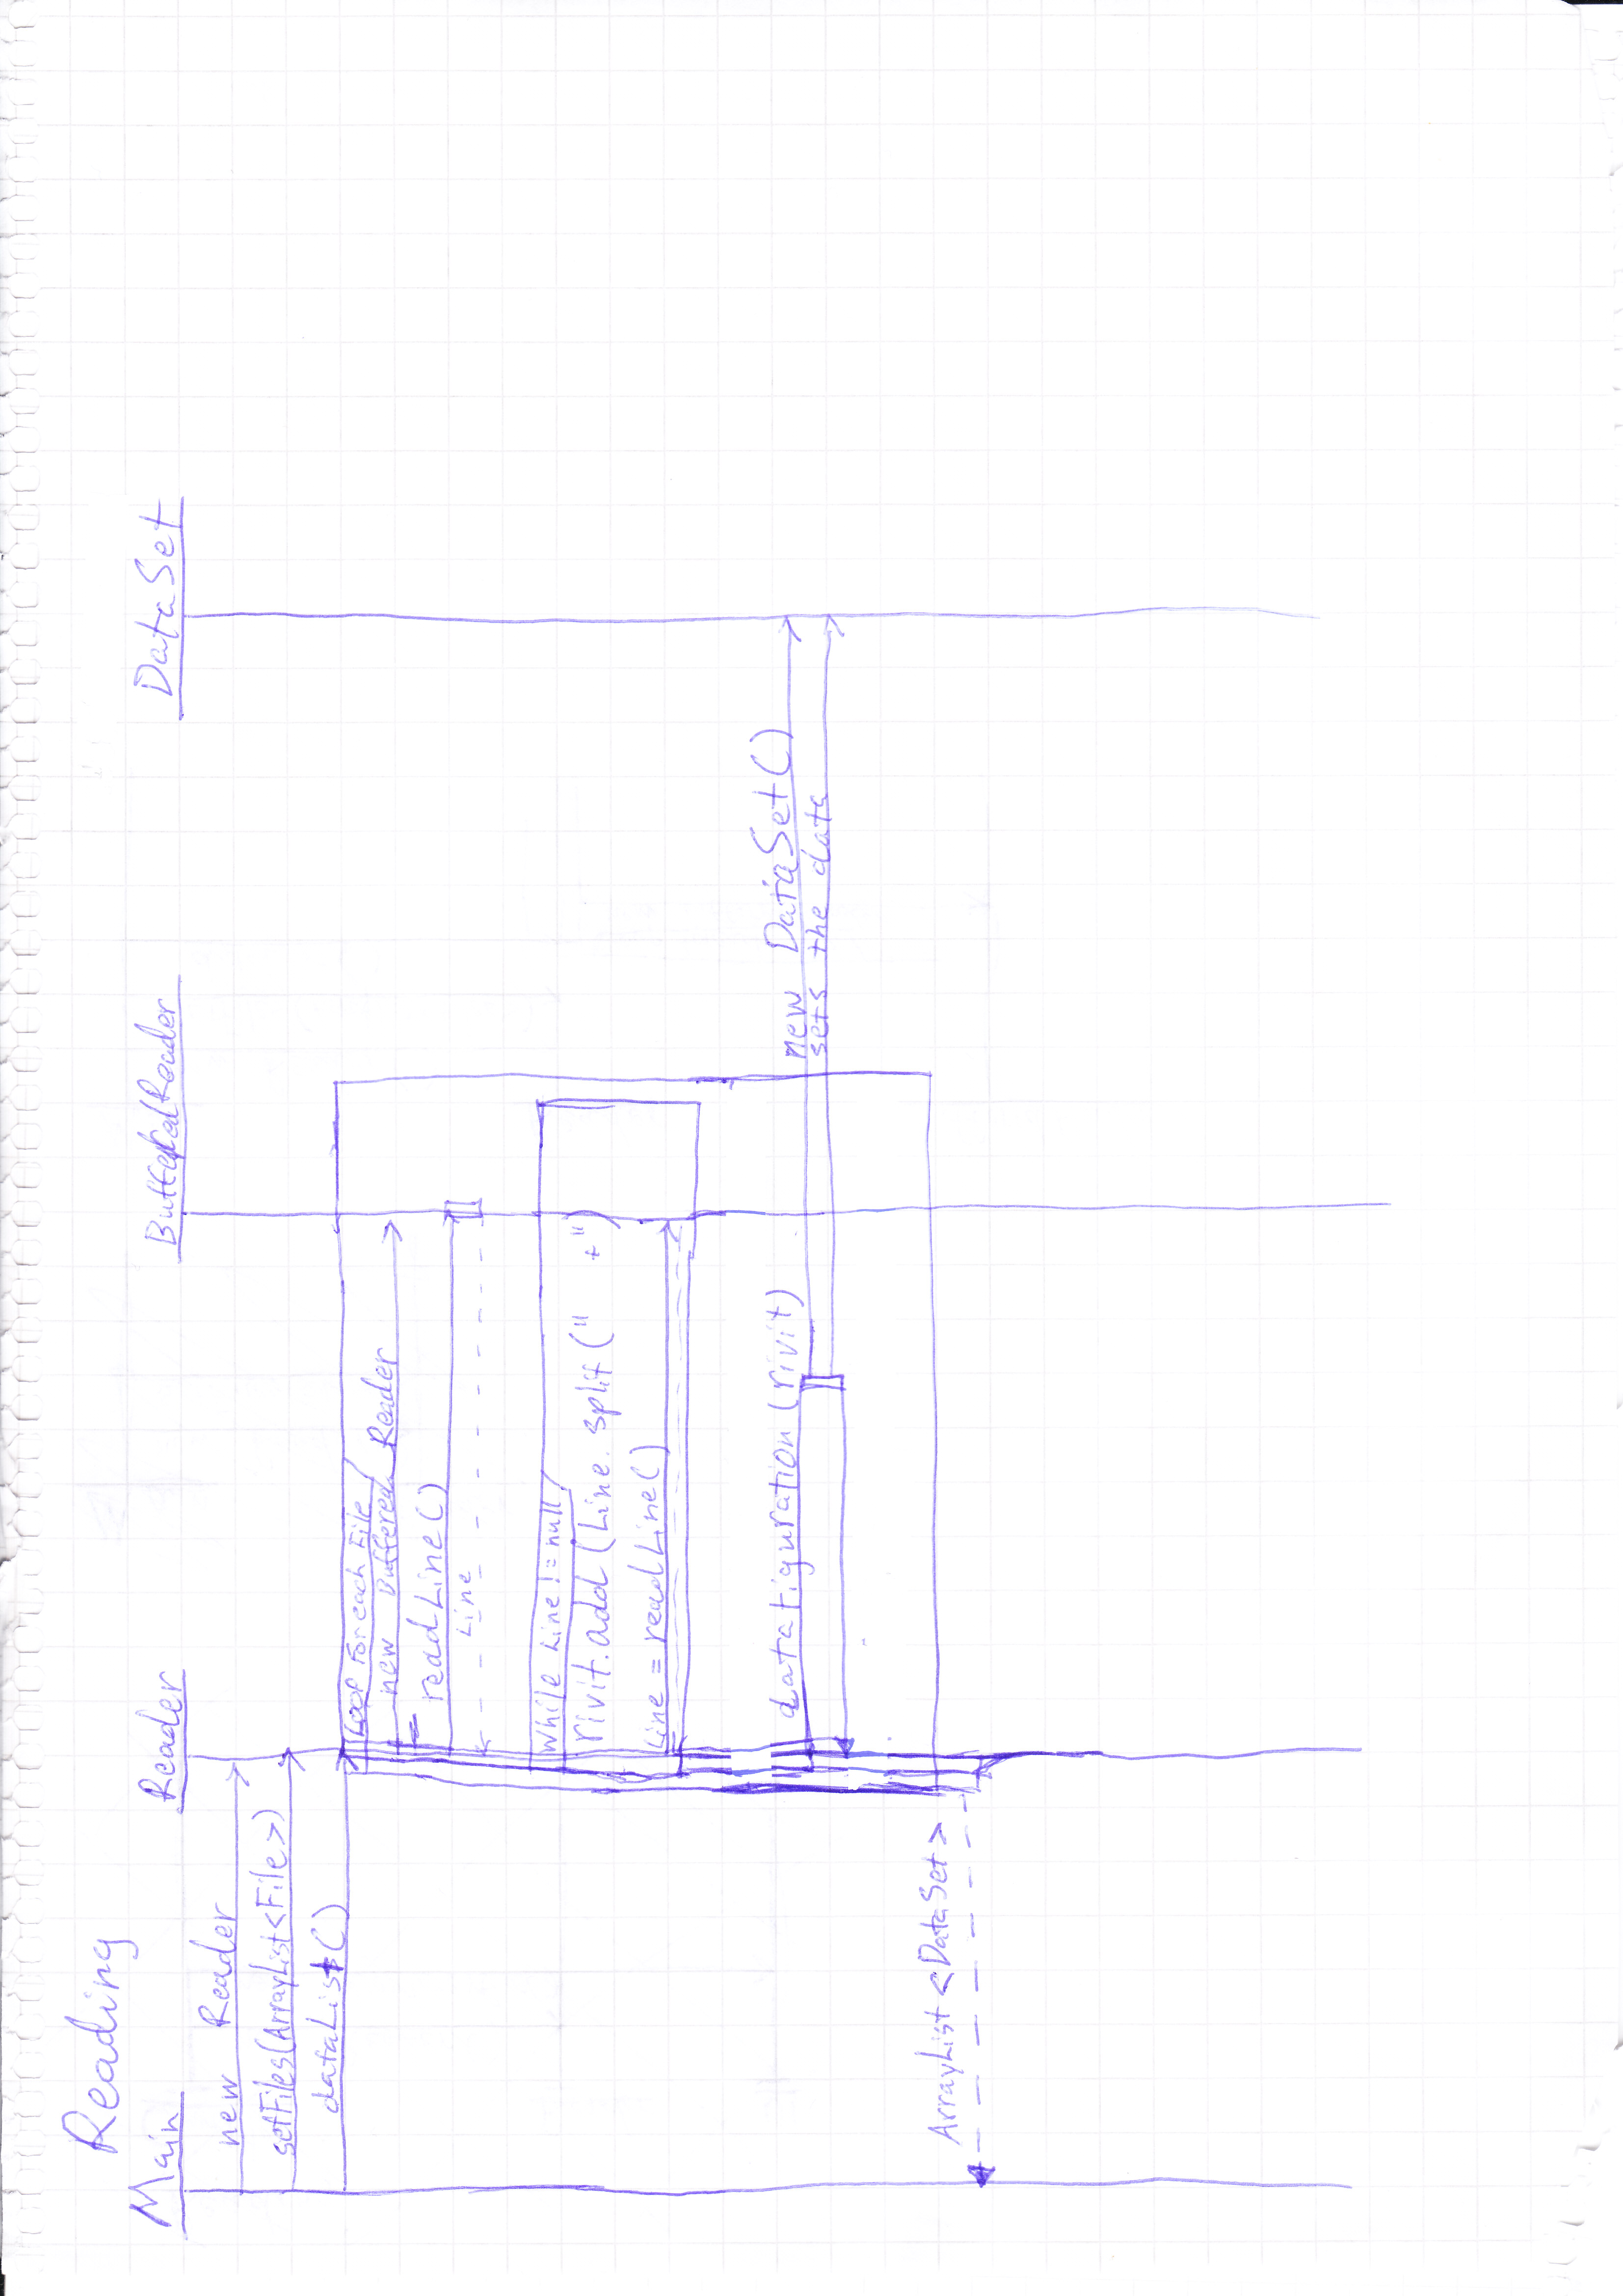 Reading
Main Reader BufferedReader DataSet
new Reader
setFiles(ArrayList<File>)
dataList()
Loop For each File
new Buffered Reader
readLine()
Line
While Line != null
rivit.add(Line.split(" +")
Line = readLine()
datafiguration(rivit)
new DataSet()
sets the data
ArrayList<DataSet>